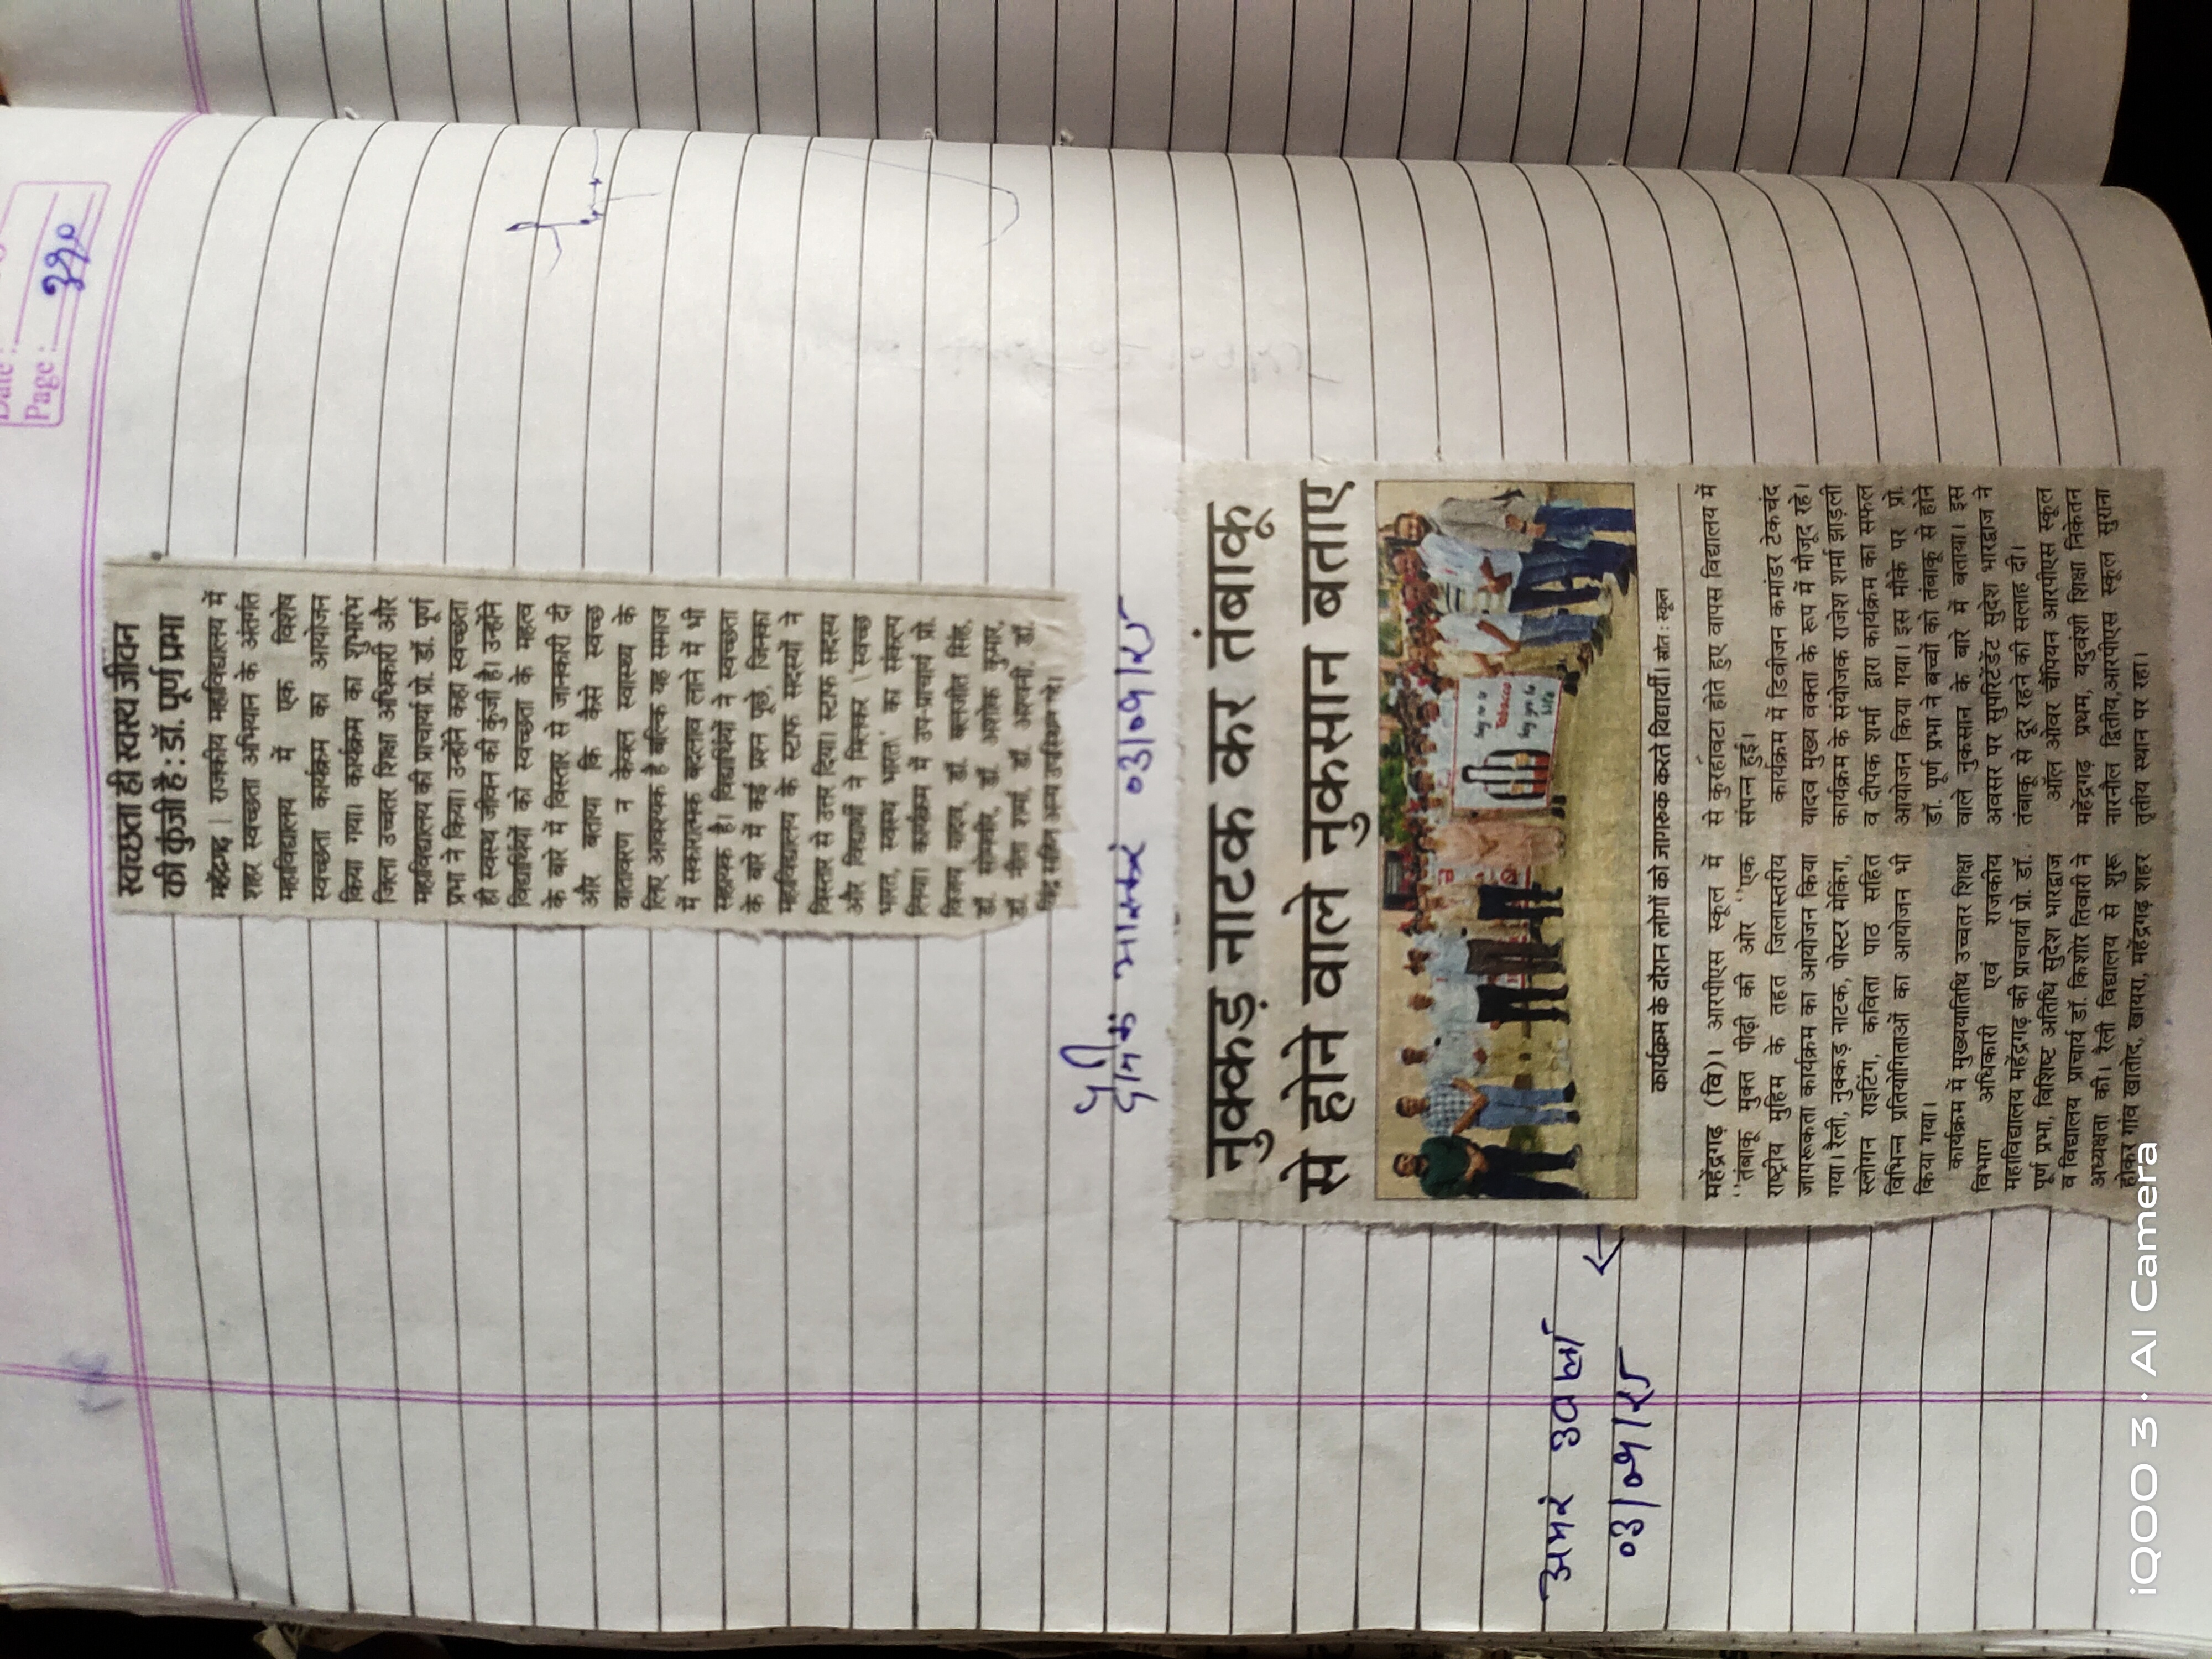 Date :
Page : ३१०
स्वच्छता ही स्वस्थ जीवन
की कुंजी है : डॉ. पूर्ण प्रभा
महेंद्रगढ़ | राजकीय महाविद्यालय में
शहर स्वच्छता अभियान के अंतर्गत
महाविद्यालय में एक विशेष
स्वच्छता कार्यक्रम का आयोजन
किया गया। कार्यक्रम का शुभारंभ
जिला उच्चतर शिक्षा अधिकारी और
महाविद्यालय की प्राचार्या प्रो. डॉ. पूर्ण
प्रभा ने किया। उन्होंने कहा स्वच्छता
ही स्वस्थ जीवन की कुंजी है। उन्होंने
विद्यार्थियों को स्वच्छता के महत्व
के बारे में विस्तार से जानकारी दी
और बताया कि कैसे स्वच्छ
वातावरण न केवल स्वास्थ्य के
लिए आवश्यक है बल्कि यह समाज
में सकारात्मक बदलाव लाने में भी
सहायक है। विद्यार्थियों ने स्वच्छता
के बारे में कई प्रश्न पूछे, जिनका
महाविद्यालय के स्टाफ सदस्यों ने
विस्तार से उत्तर दिया। स्टाफ सदस्य
और विद्यार्थी ने मिलकर 'स्वच्छ
भारत, स्वस्थ भारत' का संकल्प
लिया। कार्यक्रम में उप-प्राचार्य प्रो.
विजय यादव, डॉ. बलजीत सिंह,
डॉ. सोमवीर, डॉ. अशोक कुमार,
डॉ. नीता शर्मा, डॉ. अश्वनी, डॉ.
सहित अन्य उपस्थित रहे।
दैनिक भास्कर ०३/०५/२५
नुक्कड़ नाटक कर तंबाकू
से होने वाले नुकसान बताए
Say no to
Tobacco
Say yes to
life
कार्यक्रम के दौरान लोगों को जागरूक करते विद्यार्थी। स्रोत : स्कूल
महेंद्रगढ़ (वि)। आरपीएस स्कूल में
''तंबाकू मुक्त पीढ़ी की ओर ''एक
राष्ट्रीय मुहिम के तहत जिलास्तरीय
जागरूकता कार्यक्रम का आयोजन किया
गया। रैली, नुक्कड़ नाटक, पोस्टर मेकिंग,
स्लोगन राइटिंग, कविता पाठ सहित
विभिन्न प्रतियोगिताओं का आयोजन भी
किया गया।
कार्यक्रम में मुख्यातिथि उच्चतर शिक्षा
विभाग अधिकारी एवं राजकीय
महाविद्यालय महेंद्रगढ़ की प्राचार्या प्रो. डॉ.
पूर्ण प्रभा, विशिष्ट अतिथि सुदेश भारद्वाज
व विद्यालय प्राचार्य डॉ. किशोर तिवारी ने
अध्यक्षता की। रैली विद्यालय से शुरू
होकर गांव खातोद, खायरा, महेंद्रगढ़ शहर
से कुरहावटा होते हुए वापस विद्यालय में
संपन्न हुई।
कार्यक्रम में डिवीजन कमांडर टेकचंद
यादव मुख्य वक्ता के रूप में मौजूद रहे।
कार्यक्रम के संयोजक राजेश शर्मा झाड़ली
व दीपक शर्मा द्वारा कार्यक्रम का सफल
आयोजन किया गया। इस मौके पर प्रो.
डॉ. पूर्ण प्रभा ने बच्चों को तंबाकू से होने
वाले नुकसान के बारे में बताया। इस
अवसर पर सुपरिटेंडेंट सुदेश भारद्वाज ने
तंबाकू से दूर रहने की सलाह दी।
ऑल ओवर चैंपियन आरपीएस स्कूल
महेंद्रगढ़ प्रथम, यदुवंशी शिक्षा निकेतन
नारनौल द्वितीय,आरपीएस स्कूल सुराना
तृतीय स्थान पर रहा।
अमर उजाला
०३/०५/२५
iQOO 3 · AI Camera